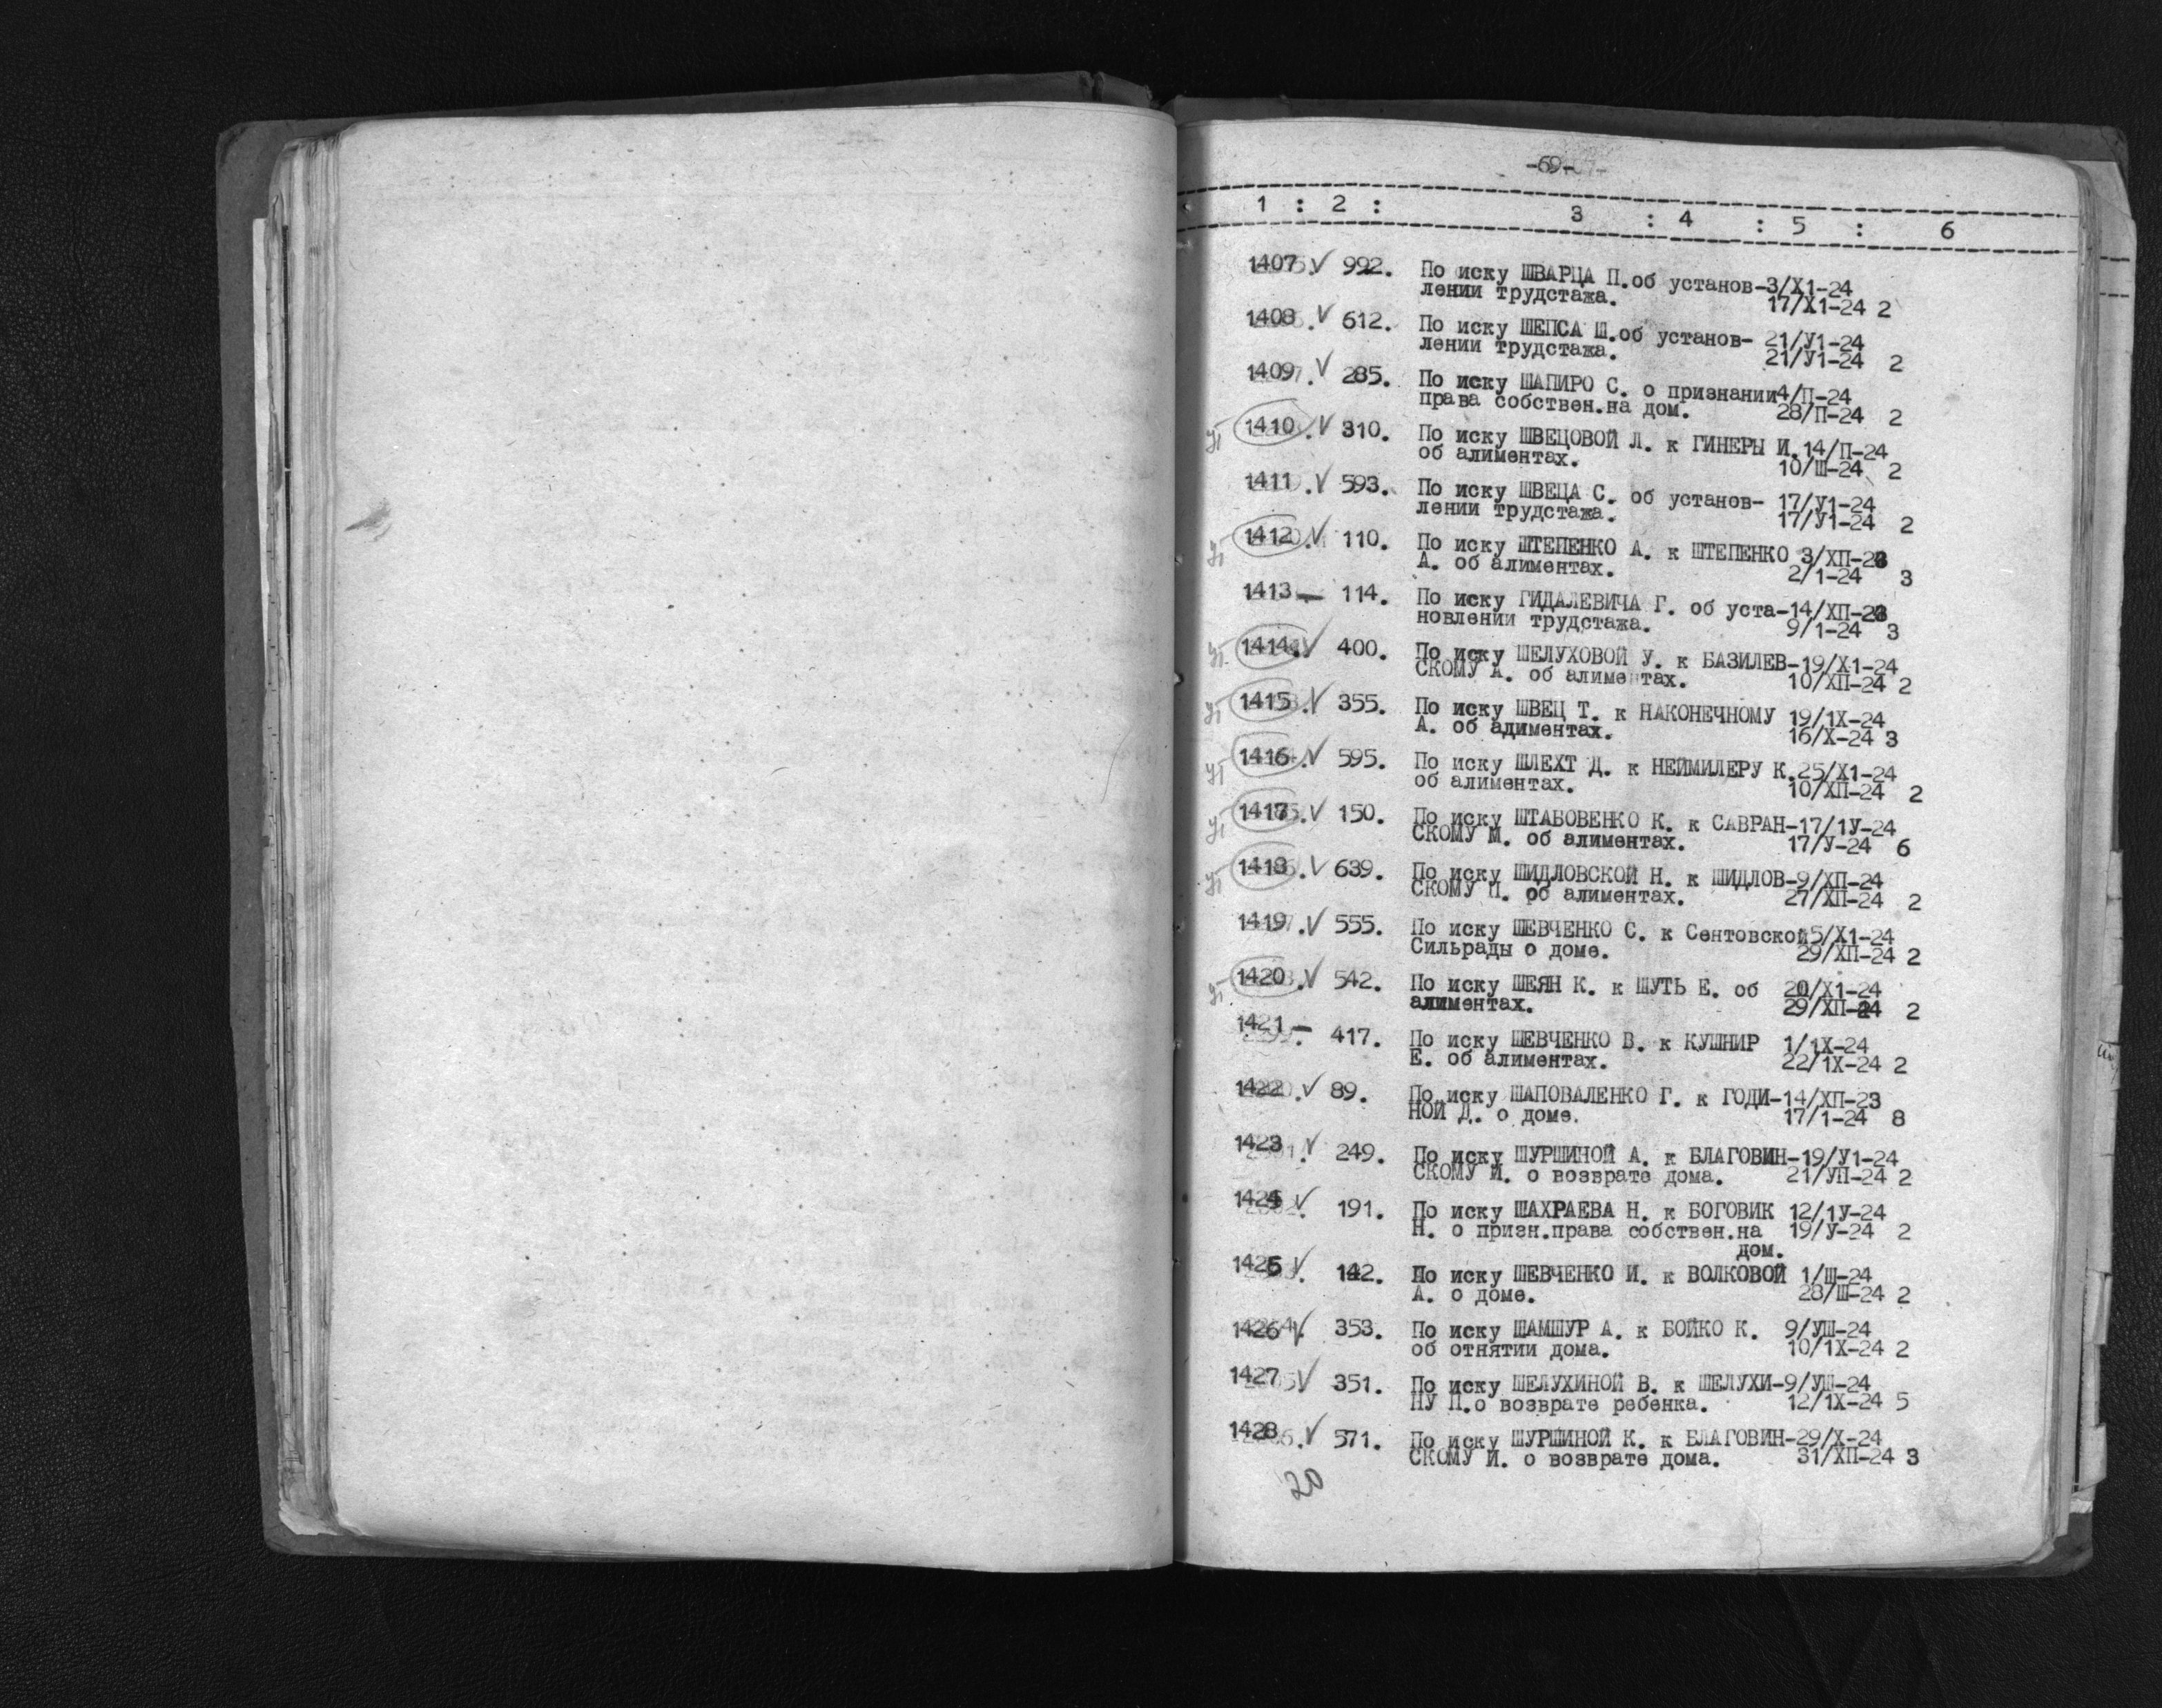 -69-
1 : 2 : 3 : 4 : 5 : 6
1407. V 992. По иску ШВАРЦА П.об установ-3/X1-24
лении трудстажа. 17/X1-24 2
1408. V 612. По иску ШЕПСА Ш.об установ- 21/У1-24
лении трудстажа. 21/У1-24 2
1409. V 285. По иску ШАПИРО С. о признании4/П-24
права собствен.на дом. 28/П-24 2
1410. V 310. По иску ШВЕЦОВОЙ Л. к ГИНЕРЫ И.14/П-24
об алиментах. 10/Ш-24 2
1411. V 593. По иску ШВЕЦА С. об установ- 17/У1-24
лении трудстажа. 17/У1-24 2
1412. V 110. По иску ШТЕПЕНКО А. к ШТЕПЕНКО 3/ХП-23
А. об алиментах. 2/1-24 3
1413 — 114. По иску ГИДАЛЕВИЧА Г. об уста-14/ХП-23
новлении трудстажа. 9/1-24 3
1414. V 400. По иску ШЕЛУХОВОЙ У. к БАЗИЛЕВ-19/X1-24
СКОМУ А. об алиментах. 10/ХП-24 2
1415. V 355. По иску ШВЕЦ Т. к НАКОНЕЧНОМУ 19/1X-24
А. об адиментах. 16/X-24 3
1416. V 595. По иску ШЛЕХТ Д. к НЕЙМИЛЕРУ К.25/X1-24
об алиментах. 10/ХП-24 2
1417. V 150. По иску ШТАБОВЕНКО К. к САВРАН-17/1У-24
СКОМУ М. об алиментах. 17/У-24 6
1418. V 639. По иску ШИДЛОВСКОЙ Н. к ШИДЛОВ-9/ХП-24
СКОМУ П. об алиментах. 27/ХП-24 2
1419. V 555. По иску ШЕВЧЕНКО С. к Сентовской5/X1-24
Сильрады о доме. 29/ХП-24 2
1420. V 542. По иску ШЕЯН К. к ШУТЬ Е. об 20/X1-24
алиментах. 29/ХП-24 2
1421 — 417. По иску ШЕВЧЕНКО В. к КУШНИР 1/1X-24
Е. об алиментах. 22/1X-24 2
1422. V 89. По иску ШАПОВАЛЕНКО Г. к ГОДИ-14/ХП-23
НОЙ Д. о доме. 17/1-24 8
1423. V 249. По иску ШУРШИНОЙ А. к БЛАГОВИН-19/У1-24
СКОМУ И. о возврате дома. 21/УП-24 2
1424. V 191. По иску ШАХРАЕВА Н. к БОГОВИК 12/1У-24
Н. о призн.права собствен.на 19/У-24 2
дом.
1425. V 142. По иску ШЕВЧЕНКО И. к ВОЛКОВОЙ 1/Ш-24
А. о доме. 28/Ш-24 2
1426. V 353. По иску ШАМШУР А. к БОЙКО К. 9/УШ-24
об отнятии дома. 10/1X-24 2
1427 V 351. По иску ШЕЛУХИНОЙ В. к ШЕЛУХИ-9/УШ-24
НУ П.о возврате ребенка. 12/1X-24 5
1428. V 571. По иску ШУРШИНОЙ К. к БЛАГОВИН-29/X-24
СКОМУ И. о возврате дома. 31/ХП-24 3
20